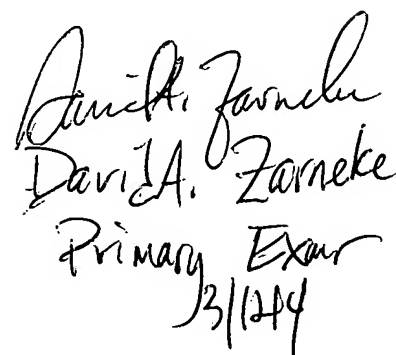 David A. Zarneke
David A. Zarneke
Primary Exmr
3/12/04